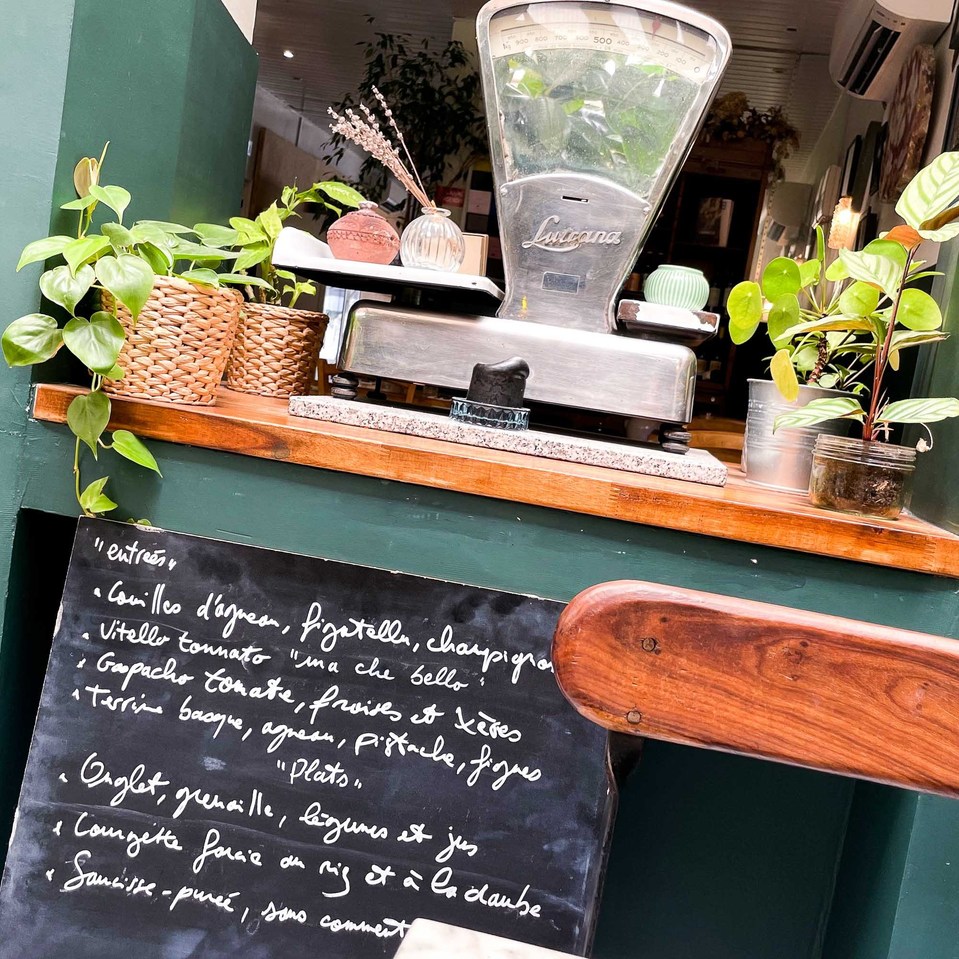 500
Luterana
"entrées"
• Couilles d'agneau, figatellu, champignon
• Vitello tonnato "ma che bello"
• Gaspacho tomate, fraises et Xères
• Terrine basque, agneau, pistache, figues
"Plats"
• Onglet, grenaille, légumes et jus
• Courgette farcie au riz et à la daube
• Saucisse-purée, sans comment